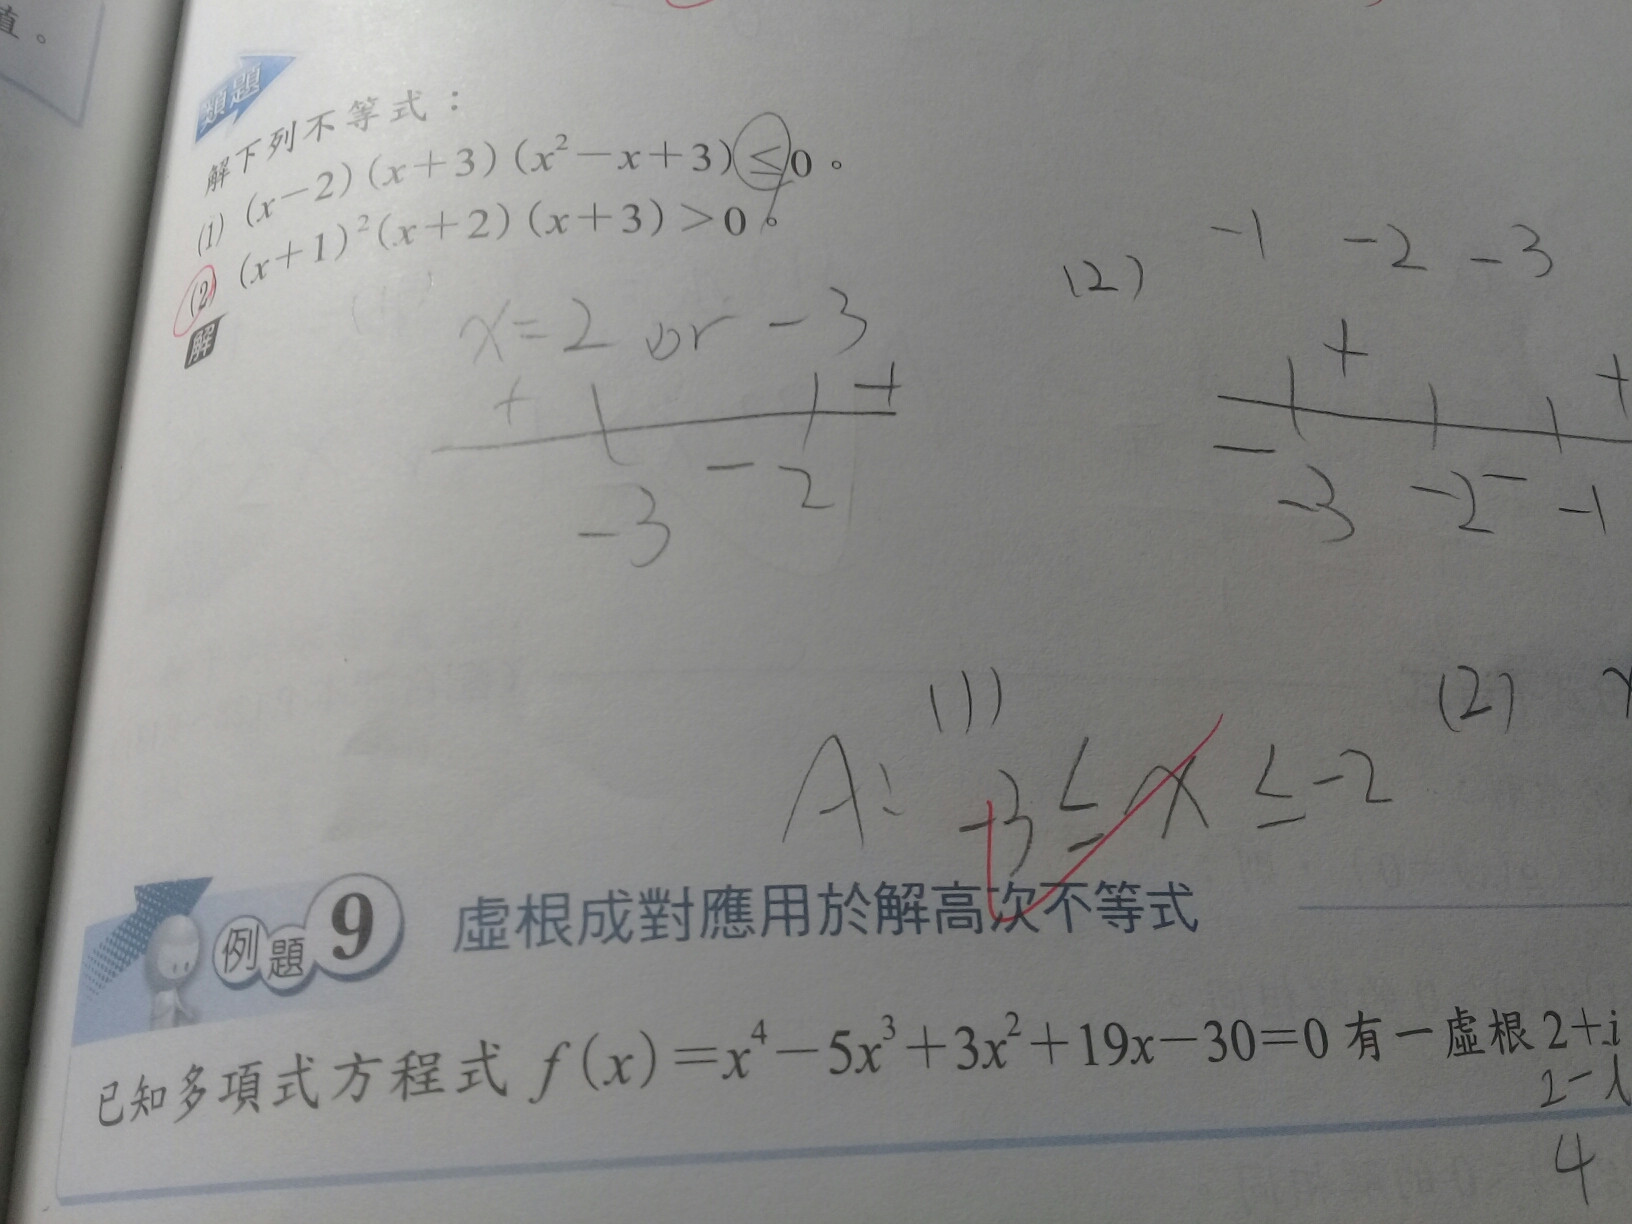 值。
類題
解下列不等式：
(1) (x−2)(x+3)(x²−x+3)≤0。
(2) (x+1)²(x+2)(x+3)>0。
解
x=2 or −3
+ +
−
−3 2
(2) −1 −2 −3
+ +
− −
−3 −2 −1
(1)
A: −3≤x≤−2
(2)
例題9 虛根成對應用於解高次不等式
已知多項式方程式 f(x)=x⁴−5x³+3x²+19x−30=0 有一虛根 2+i
2−i
4